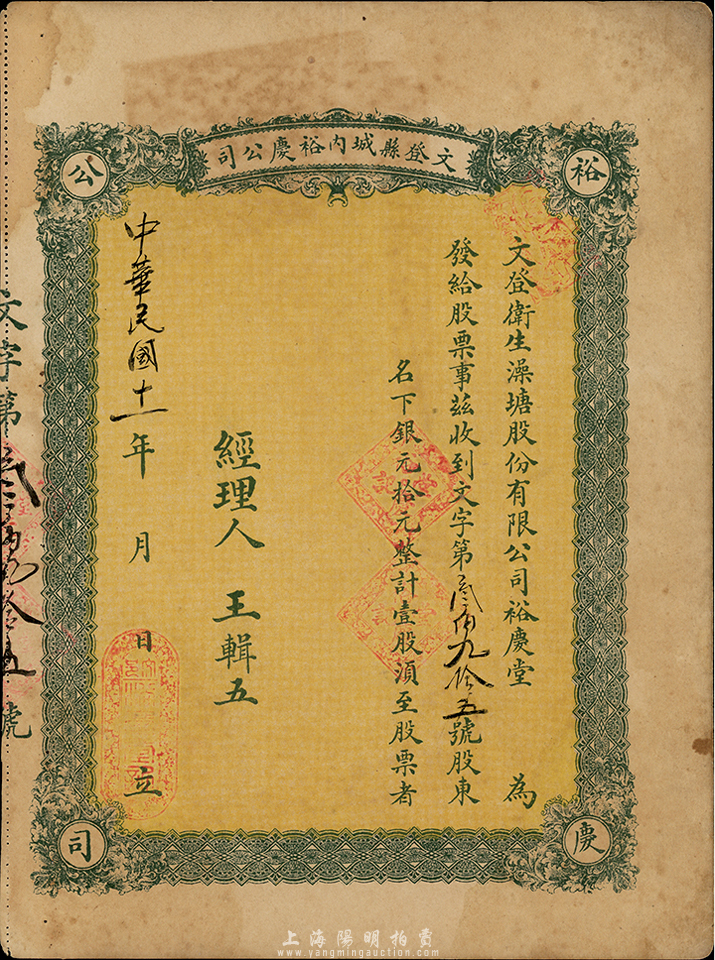 文登縣城内裕慶公司
裕
慶
公
司
文登衛生澡塘股份有限公司裕慶堂 為
發給股票事兹收到文字第貳佰九拾五號股東
名下銀元拾元整計壹股須至股票者
經理人 王輯五
中華民國十一年 月 日 立
文字第貳百九拾五號
上海陽明拍賣
www.yangmingauction.com